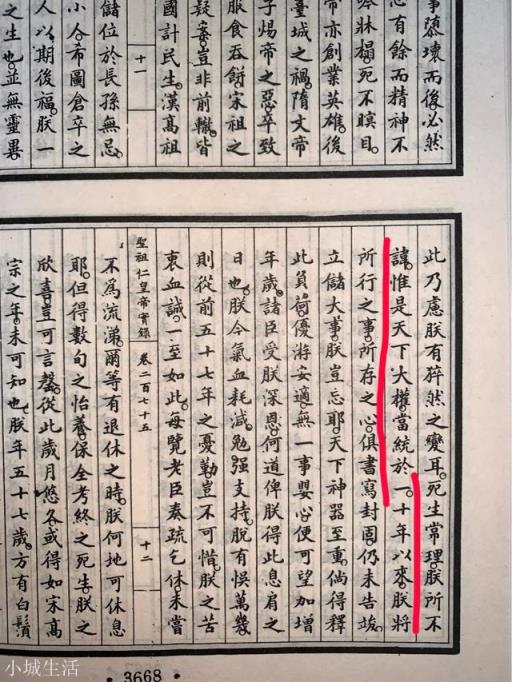 事隳壞而後必然
心有餘而精神不
吟牀榻。死不瞑目。
帝亦創業英雄。後
臺城之禍。隋文帝
子煬帝之惡。卒致
服食吞餅。宋祖之
疑案。豈非前轍。皆
十一
國計民生。漢高祖
儲位於長孫無忌。
小人。希圖倉卒之
人以期後福。朕一
之生也。並無靈異
此乃慮朕有猝然之變耳。死生常理。朕所不
諱。惟是天下大權。當統於一。十年以來。朕將
所行之事。所存之心。俱書寫封固。仍未告竣。
立儲大事。朕豈忘耶。天下神器至重。倘得釋
此負荷。優游安適。無一事嬰心。便可望加增
年歲。諸臣受朕深恩。何道俾朕得此息肩之
日也。朕今氣血耗減。勉強支持。脫有悞萬幾。
則從前五十七年之憂勤。豈不可惜。朕之苦
衷血誠。一至如此。每覽老臣奏疏乞休。未嘗
聖祖仁皇帝實錄 卷二百七十五 十二
不為流涕。爾等有退休之時。朕何地可休息
耶。但得數旬之怡養。保全考終之死生。朕之
欣喜。豈可言罄。從此歲月悠久。或得如宋高
宗之年。未可知也。朕年五十七歲。方有白鬚
• 3668 •
小城生活